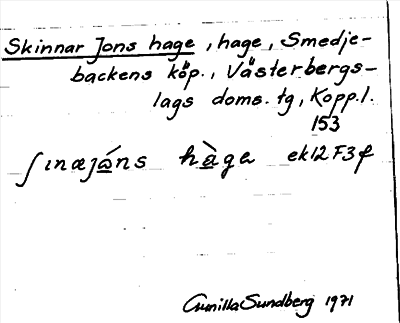 Skinnar Jons hage, hage, Smedje-
backens köp., Västerbergs-
lags doms. tg, Kopp.l.
153
ʃınæjáns hàge ek12F3f
Gunilla Sundberg 1971